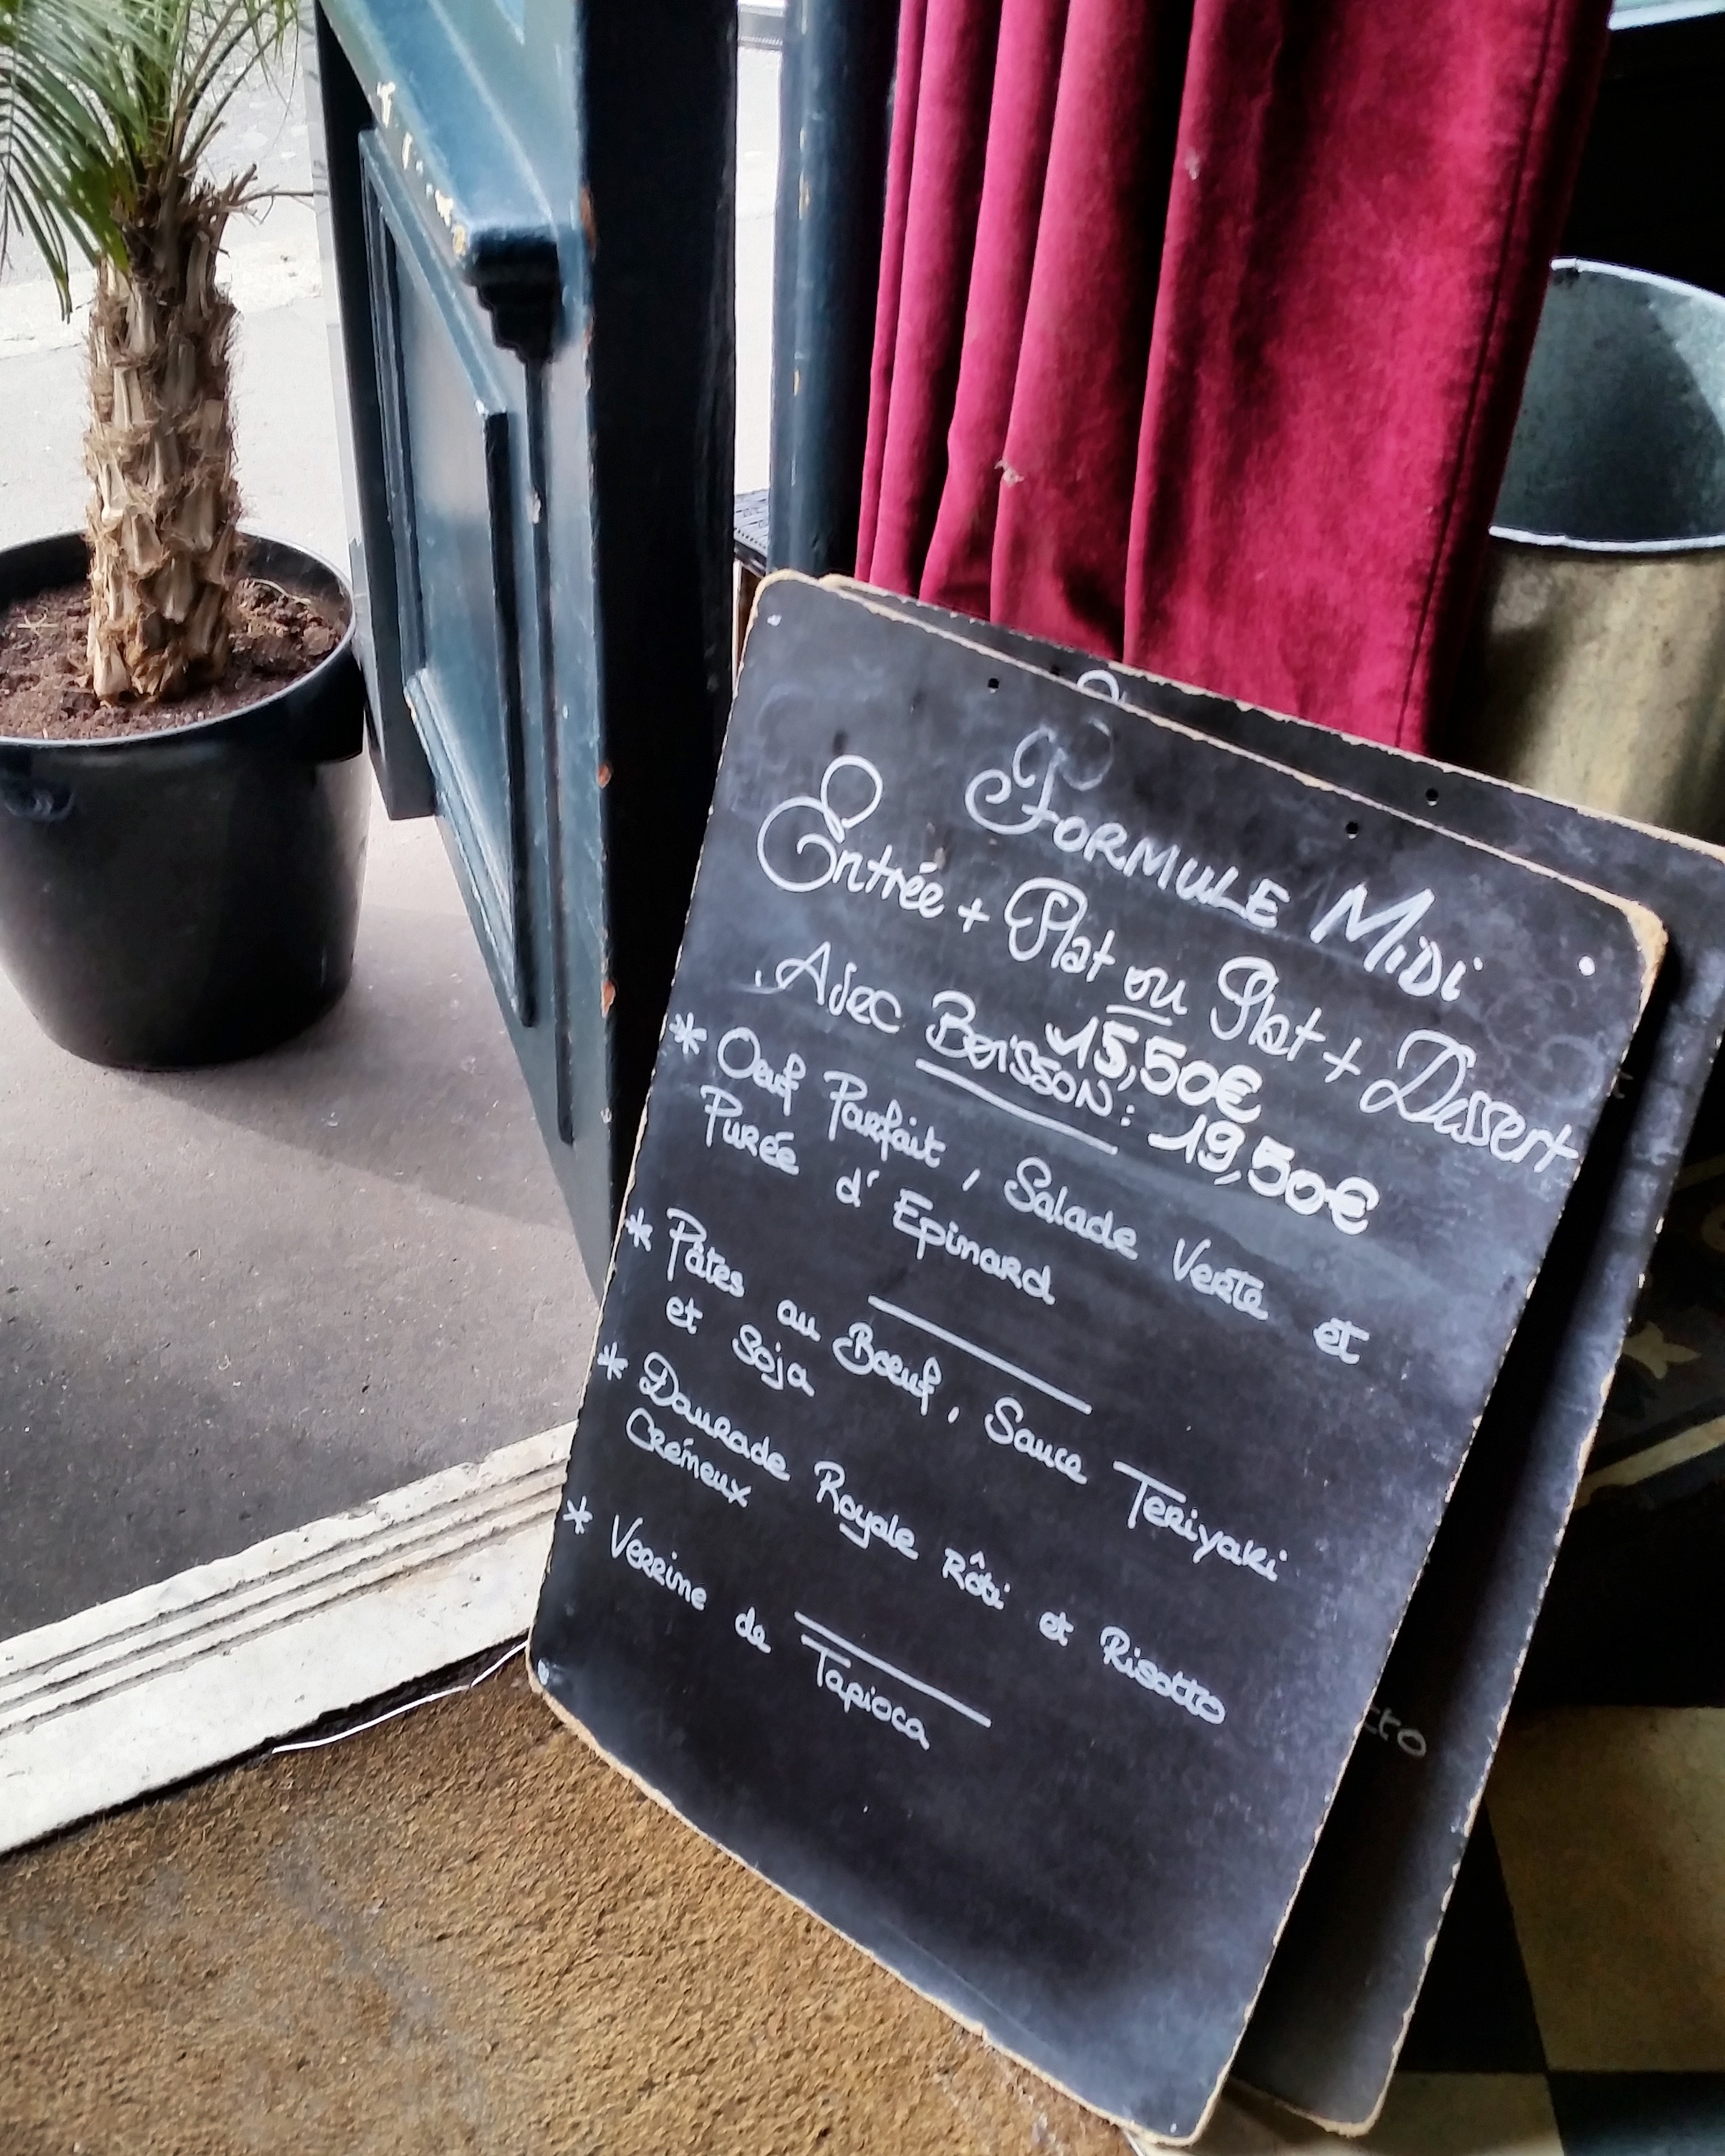 Formule Midi
Entrée + Plat ou Plat + Dessert
15,50€
Avec Boisson: 19,50€
* Oeuf Parfait, Salade Verte et
Purée d'Epinard
* Pâtes au Boeuf, Sauce Teriyaki
et Soja
* Daurade Royale Rôti et Risotto
Crémeux
* Verrine de Tapioca
tto